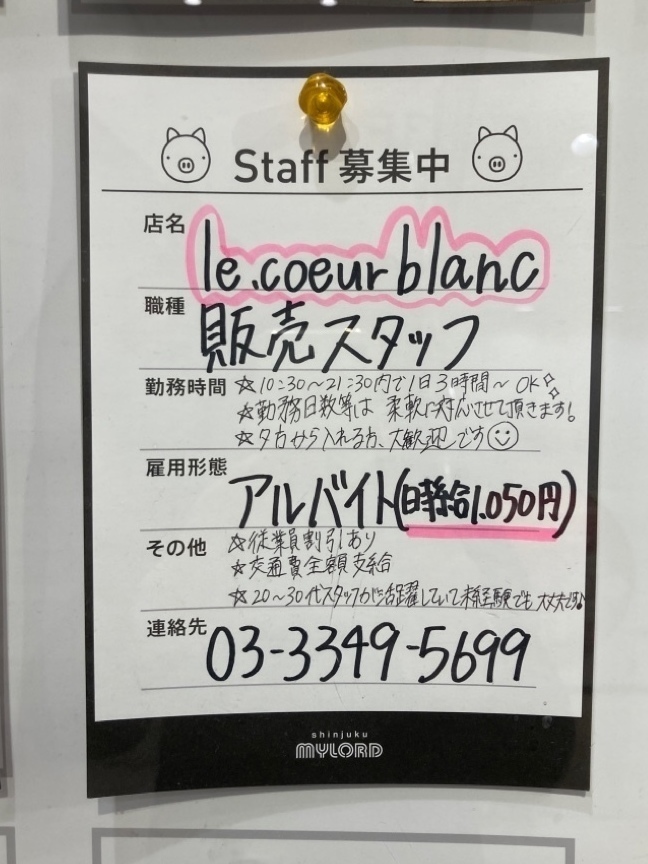 Staff 募集中
店名
le.coeur blanc
職種
販売スタッフ
勤務時間
☆10:30〜21:30内で1日3時間〜OK
☆勤務日数等は 柔軟に対応させて頂きます!
☆夕方から入れる方、大歓迎です
雇用形態
アルバイト(時給1.050円)
その他
☆従業員割引あり
☆交通費全額支給
☆20〜30代スタッフが活躍していて未経験でも大丈夫です♪
連絡先
03-3349-5699
shinjuku
MYLORD